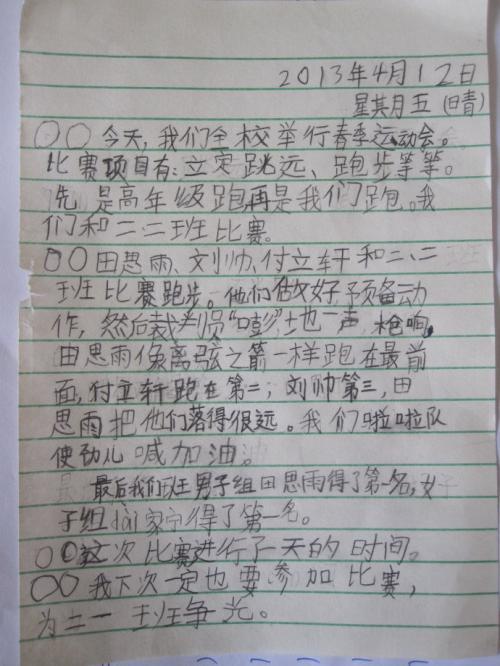 2013年4月12日
星其月五(晴)
○○今天,我们全校举行春季运动会。
比赛项目有:立定跳远、跑步等等。
先是高年级跑再是我们跑。我
们和二、二班比赛。
○○田思雨、刘帅、付立轩和二、二
班比赛跑步。他们做好预备动
作,然后裁判员“嘭”地一声,枪响,
田思雨像离弦之箭一样跑在最前
面,付立轩跑在第二,刘帅第三,田
思雨把他们落得很远。我们啦啦队
使劲儿喊加油。
最后我们班男子组田思雨得了第一名,女
子组家宁得了第一名。
○○这次比赛进行了一天的时间。
○○我下次一定也要参加比赛,
为二一班争光。